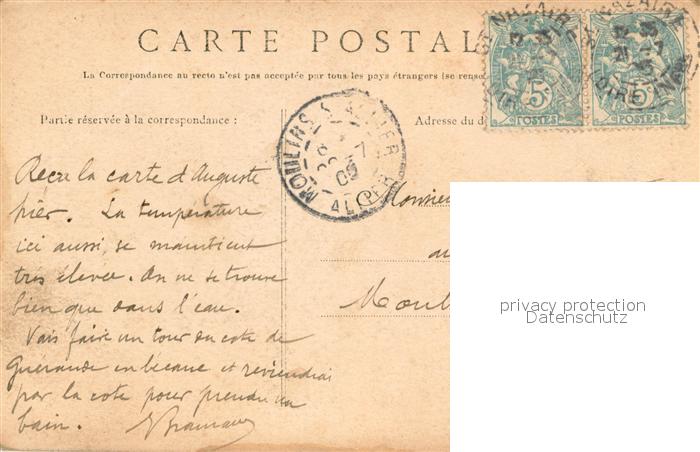 CARTE POSTAL
La Correspondance au recto n'est pas acceptée par tous les pays étrangers (se rense
Partie réservée à la correspondance :
Adresse du d
ST NAZAIRE
LOIRE INF
5c
POSTES
5c
POSTES
MOULINS S. ALLIER
ALLIER
Recu la carte d'Auguste
hier. La température
ici aussi, se maintient
très élevée. On ne se trouve
bien que dans l'eau.
Vais faire un tour du côté de
Guérande en bécane et reviendrai
par la cote pour prendre un
bain.
Monsieu
au
Moul
privacy protection
Datenschutz